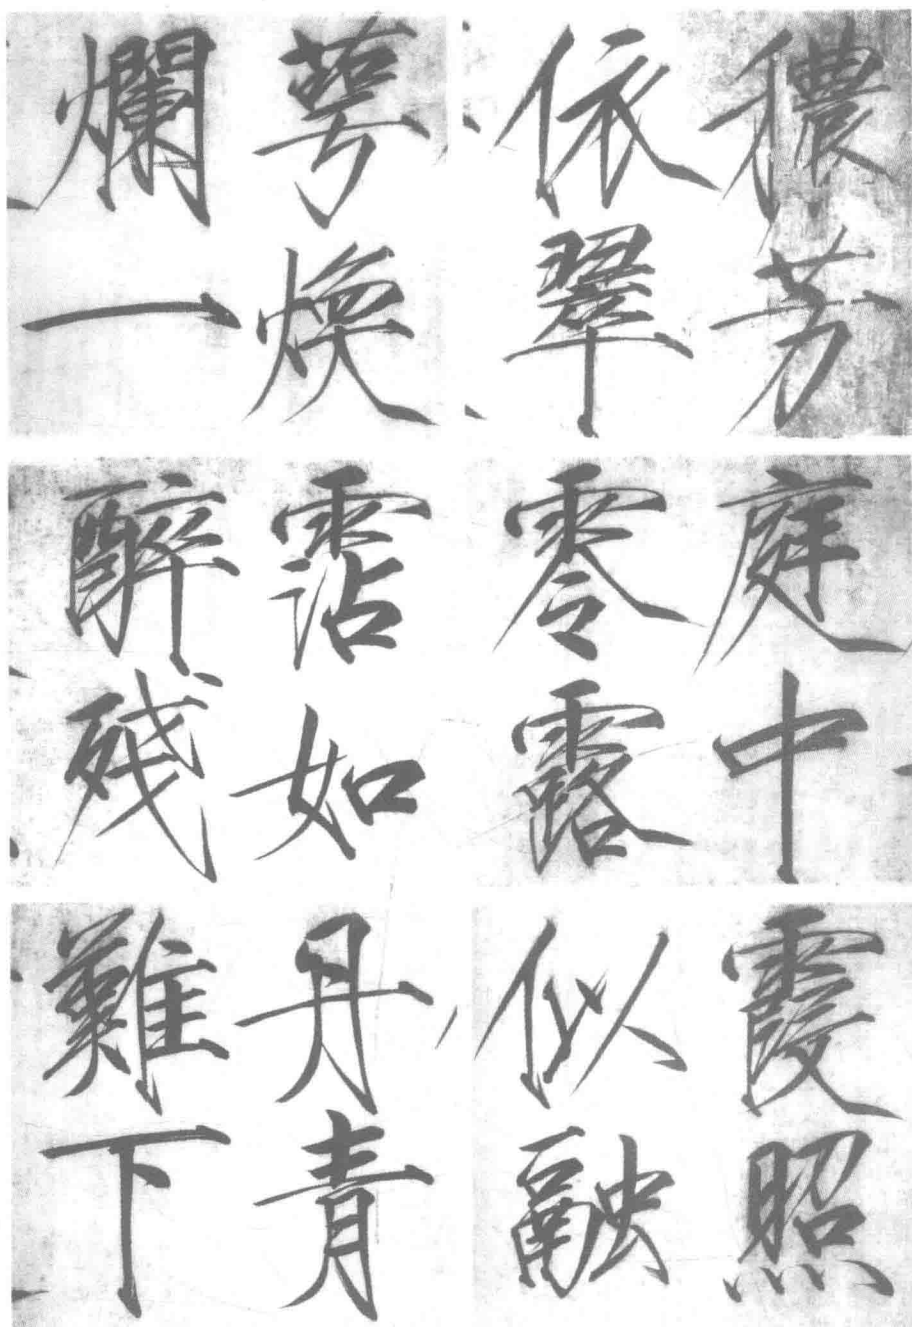 穠芳
依翠
萼煥
爛一
庭中
零露
霑如
醉殘
霞照
似融
丹青
難下